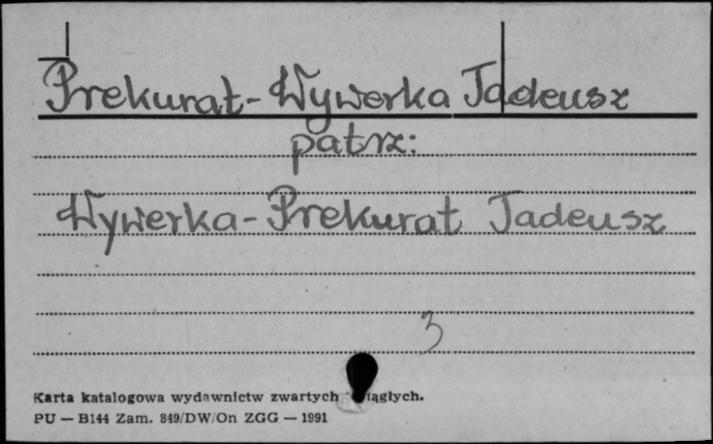 Prekurat-Wywerka Tadeusz
patrz:
Wywerka-Prekurat Tadeusz
3
Karta katalogowa wydawnictw zwartych i ciągłych.
PU — B144 Zam. 849/DW/On ZGG — 1991